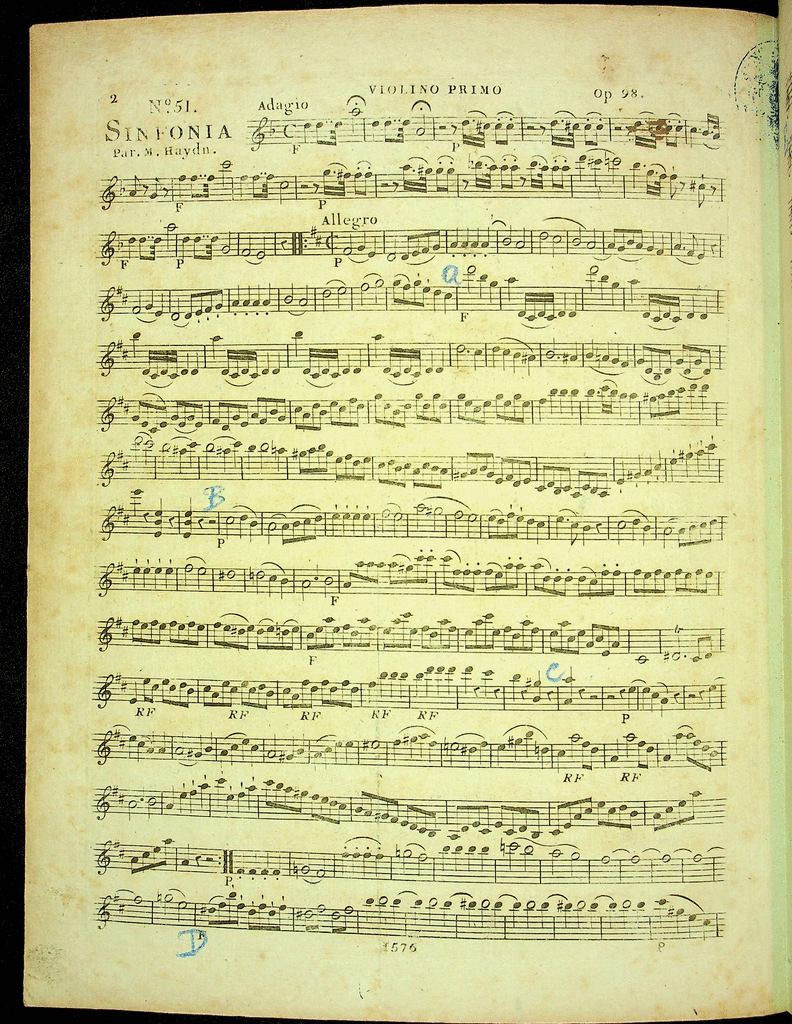 VIOLINO PRIMO
2
Nº 51.
Op 98.
SINFONIA
Par. M. Haydn.
Adagio
F P
F P
Allegro
F P P
a
F
B
P
F
F
C
RF RF RF RF RF P
RF RF
P.
D F
1576
P